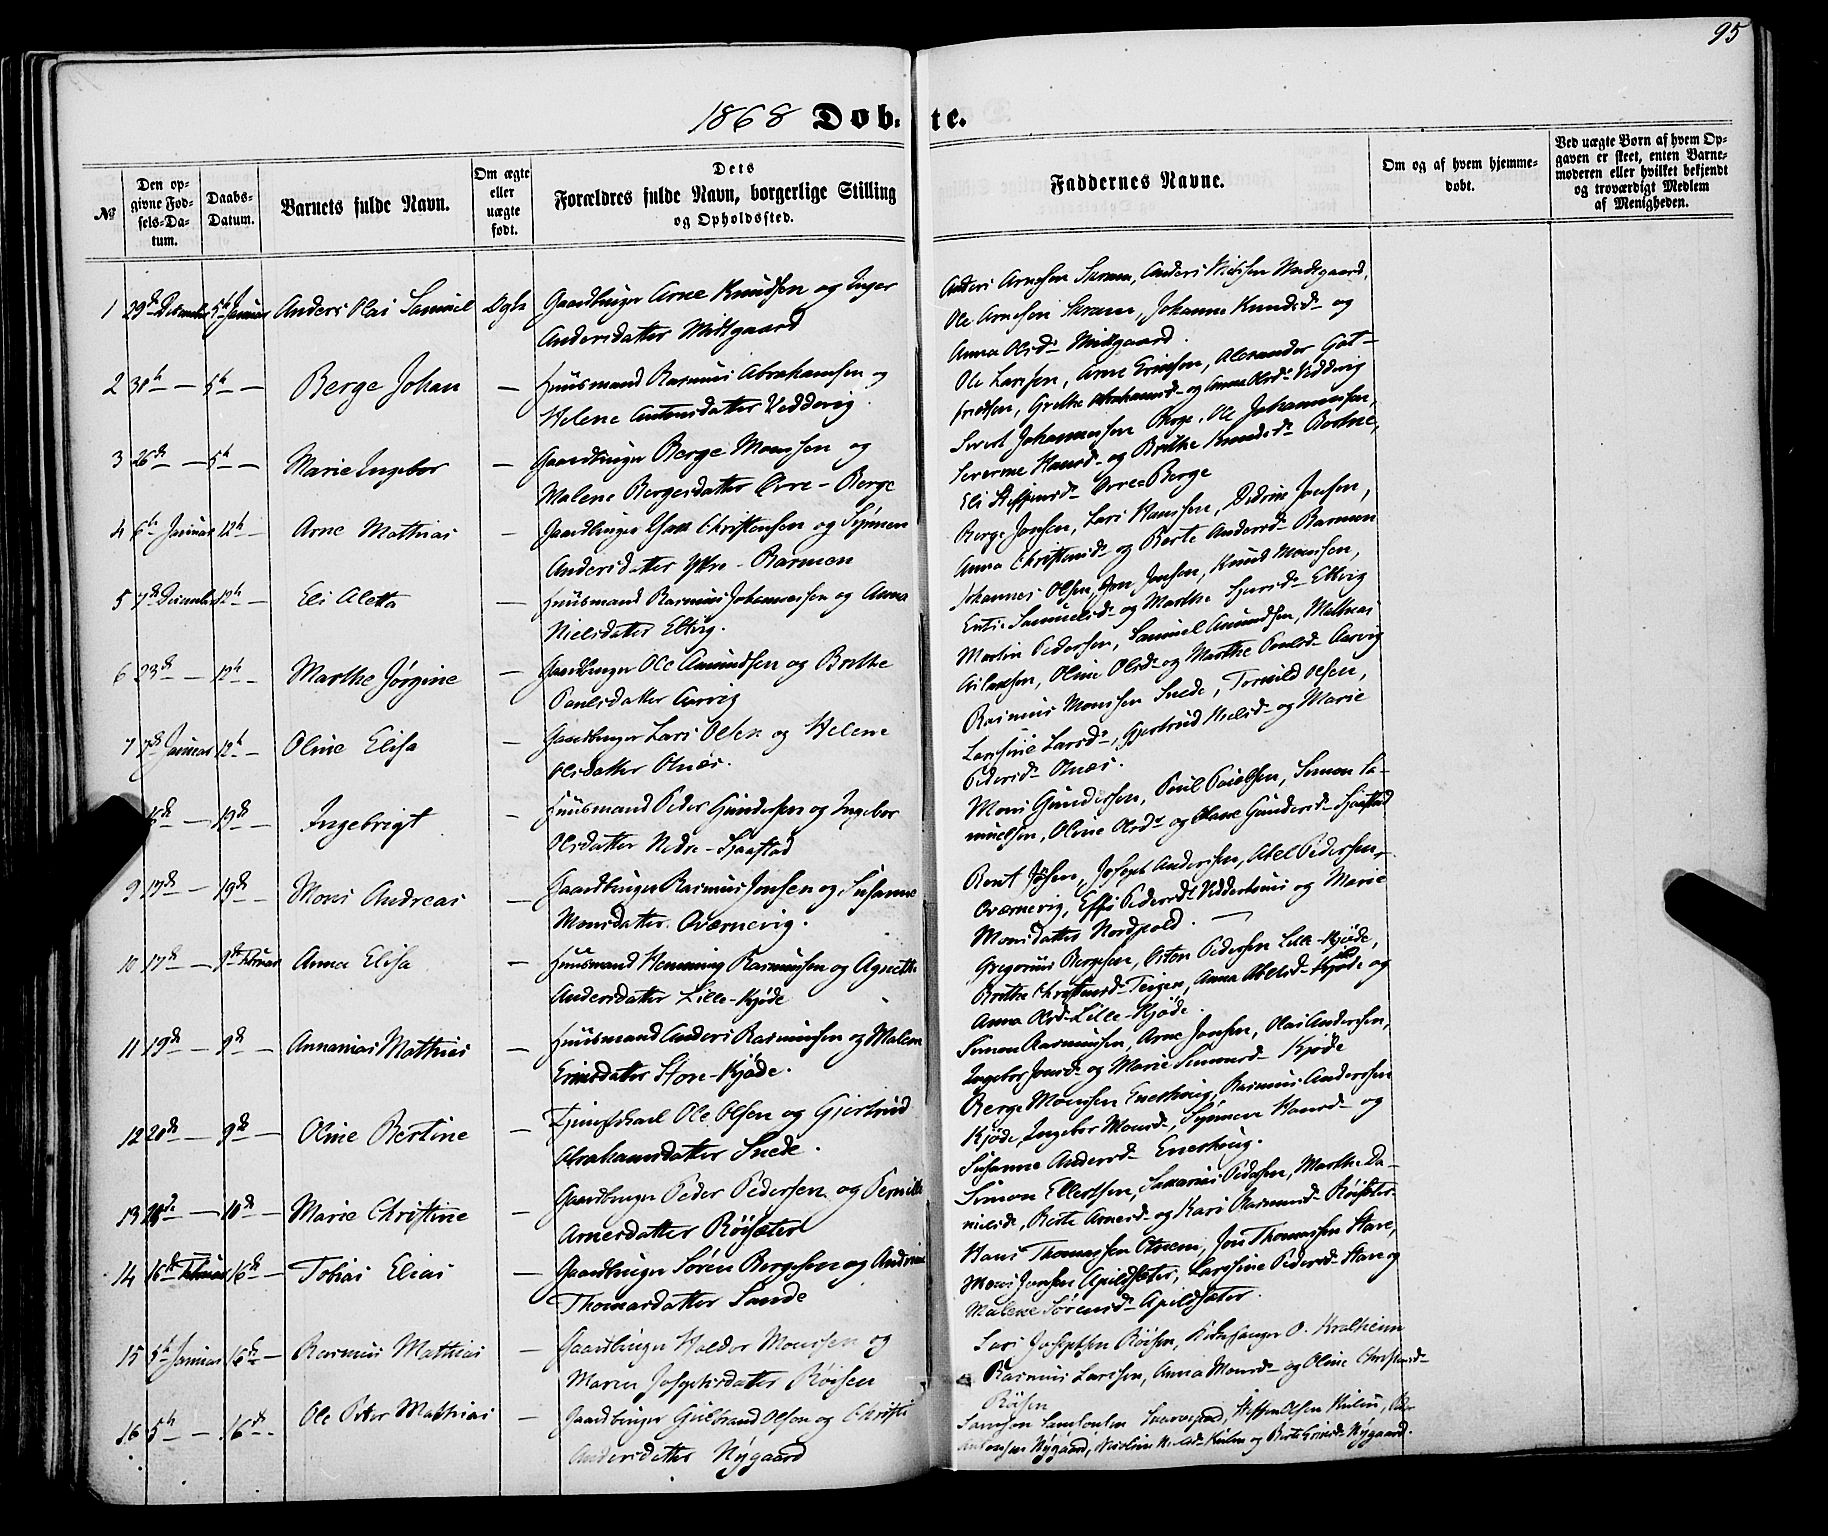 95
1868 Døb. te.
№
Den opgivne Fødsels-Datum.
Daabs-Datum.
Barnets fulde Navn.
Om ægte eller uægte født.
Dets Forældres fulde Navn, borgerlige Stilling og Opholdssted.
Faddernes Navne.
Om og af hvem hjemmedøbt.
Ved uægte Børn af hvem Opgaven er skeet, enten Barnemoderen eller hvilket bekjendt og troværdigt Medlem af Menigheden.
1 29de December 5te Januar Anders Olai Samuel Ægte Gaardbruger Arne Knudsen og Inger
Andersdatter Midtgaard
Anders Arnesen Skram, Anders Nielsen Midtgaard,
Ole Arnesen Skram, Johanne Knudsd. og
Anna Olsd. Midtgaard.
2 30te — 5te — Berge Johan — Huusmand Rasmus Abrahamsen og
Helene Antonsdatter Veddevig.
Ole Larssen, Arne Ericksen, Alexander Gotfredsen, Grethe Abrahamsd. og Anna Olsd. Veddevig
3 26de — 5te — Marie Ingebor — Gaardbruger Berge Monssen og
Malene Bergesdatter Orre-Berge
Sivert Johannessen Berge, Ole Johannessen,
Severine Hansd. og Brithe Knudsd. Bortne,
Eli Steffensd. Orre-Berge
4 6te Januar 12te Arne Mathias — Gaardbruger Isak Christensen og Synneu
Andersdatter Ytre-Barmen
Berge Jonsen, Lars Hanssen, Didrik Jonsen,
Anna Christensd. og Berte Andersd. Barmen
5 7de December 12te — Eli Aletta — Huusmand Rasmus Johannessen og Anna
Nielsdatter Eltvig.
Johannes Olsen, Jon Jonsen, Knud Monssen,
Samuelsd. og Marthe Sjursd. Eltvig
6 23de — 12te — Marthe Jørgine — Gaardbruger Ole Amundsen og Brithe
Paulsdatter Aarvig
Martin Pedersen, Samuel Amundsen, Mathias
Aslaksen, Oline Olsd. og Marthe Paulsd. Aarvig
7 7de Januar 12te — Oline Elisa — Gaardbruger Lars Olsen og Helene
Olsdatter Osnæs.
Rasmus Monssen Snede, Tormild Olsen,
Larssine Larsd., Gjertrud Nielsd. og Marie
Pedersd. Osnæs.
— 19de — Ingebrigt — Huusmand Peder Gundersen og Ingebor
Olsdatter Nedre-Sjaastad
Mons Gundersen, Poul Poulsen, Simon Samuelsen, Oline Olsd. og Oline Gundersd. Sjaastad
9 17de — 19de — Mons Andreas — Gaardbruger Rasmus Jonsen og Susanne
Monsdatter Oværnevig.
Bent Jonsen, Joseph Andersen, Abel Pedersen,
Oværnevig, Pedersd. og Marie
Monsdatter Nordpold.
10 17de — 9de Februar Anna Elisa — Huusmand Henning Rasmussen og Agnethe
Andersdatter Lille-Kjøde
Gregorius Bergesen, Anton Pedersen Lille-Kjøde,
Brithe Christensd. Teigen, Anna Abelsd. Kjøde og
Anna Olsd. Lille-Kjøde.
11 19de — 9de — Annanias Mathias — Huusmand Anders Rasmussen og Malene
Ericksdatter Store-Kjøde.
Simon Rasmussen, Arne Jonsen, Olai Andersen,
Ingebor Jonsd. og Marie Simonsd. Kjøde
12 20de — 9de — Oline Bertine — Tjenestkarl Ole Olsen og Gjertrud
Abrahamsdatter Snede.
Berge Monssen Eneshoug, Rasmus Andersen
Kjøde, Ingebor Monsd., Synneu Hansd. og
Susanne Andersd. Eneshoug.
13 28de — 10de — Marie Christine — Gaardbruger Peder Pedersen og Pernille
Arnesdatter Røisæter
Simon Ellertsen, Zakarias Pedersen, Marthe Danielsd., Berte Arnesd. og Kari Rasmusd. Røisæter
14 16de Februar 16de — Tobias Elias — Gaardbruger Søren Bergesen og Andrine
Thomasdatter Sande
Hans Thomassen Otneim, Jon Thomassen Stave,
Mons Jonsen Apildsæter, Larssine Pedersd. Stave og
Malene Sørensd. Apildsæter.
15 5te Januar 16de — Rasmus Mathias — Gaardbruger Haldor Monssen og
Maren Josephsdatter Røisen
Lars Josephsen Røisen, Kirkesanger O. Kvalheim
Rasmus Larssen, Anna Monsd. og Oline Christensd.
Røisen
16 5te — 16de — Ole Peter Mathias — Gaardbruger Gulbrand Olsen og Christi
Andersdatter Nygaard
Samson Samsonsen, Steffen Olsen Hulen,
Nygaard, Nicoline Nielsd. Hulen og Berte Nygaard.